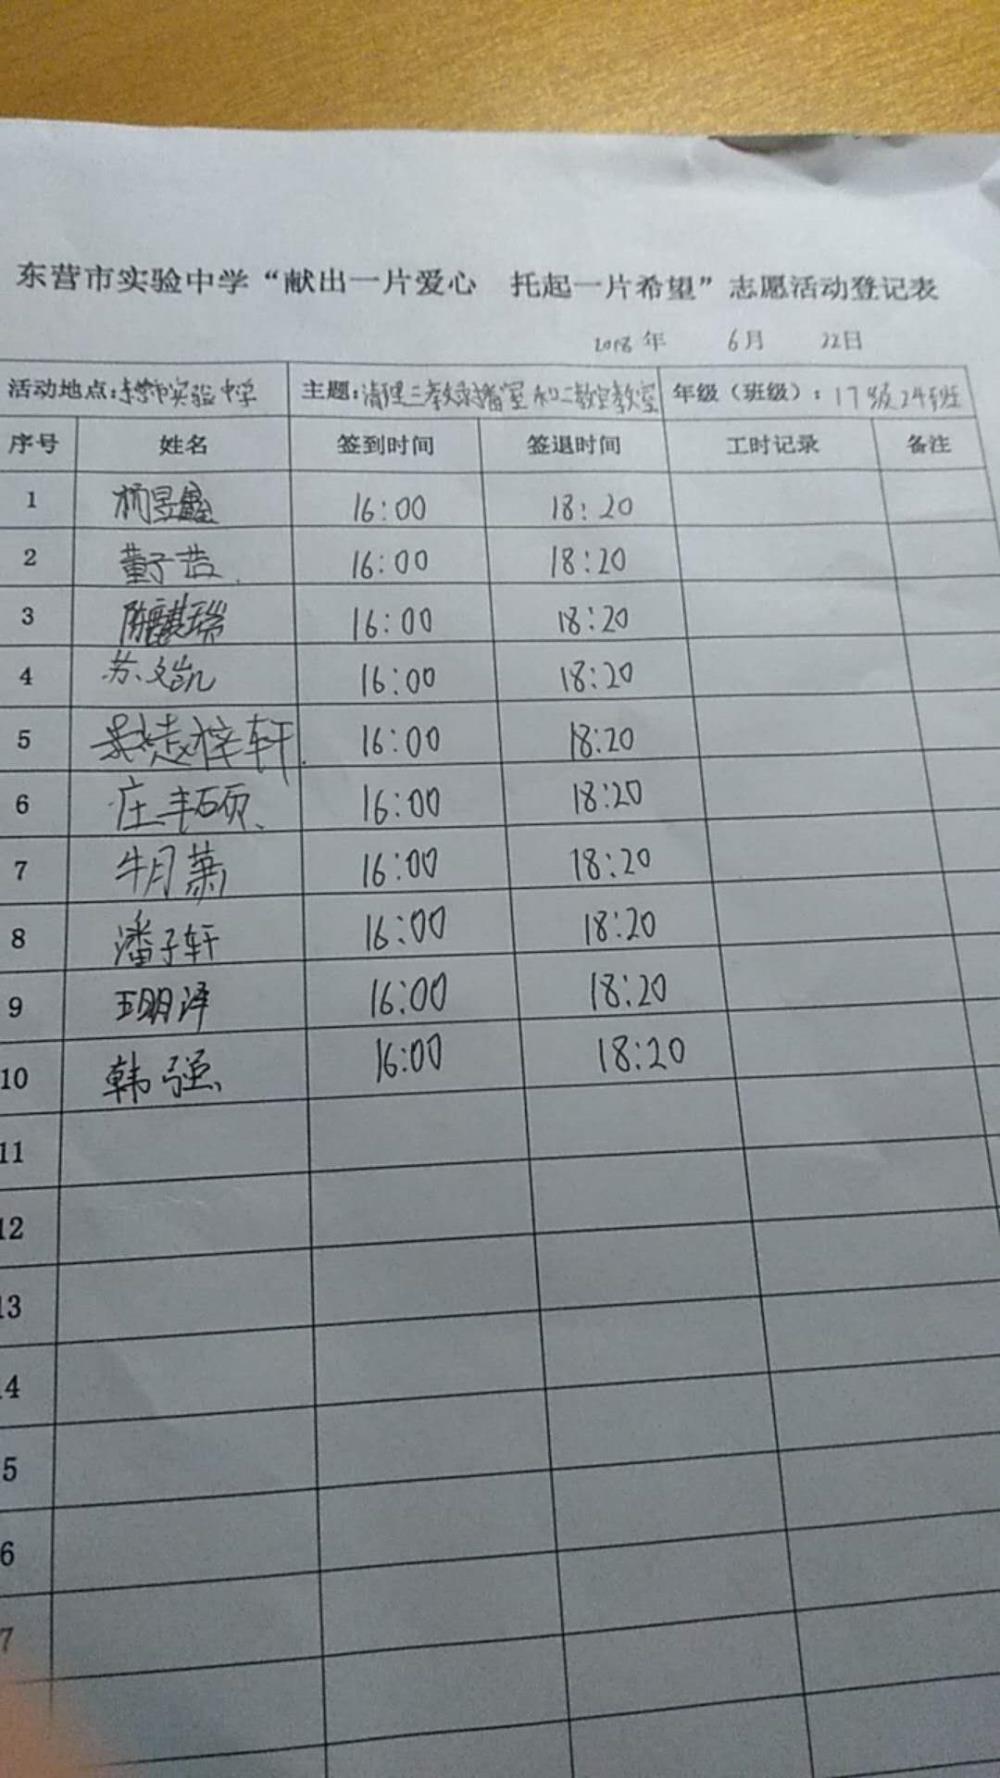 东营市实验中学“献出一片爱心 托起一片希望”志愿活动登记表
2018年 6月 22日
活动地点:东营市实验中学 主题:清理三教录播室和二教空教室 年级（班级）: 17级24班
序号 姓名 签到时间 签退时间 工时记录 备注
1 杨昱鑫 16:00 18:20
2 董子浩 16:00 18:20
3 陈麒瑞 16:00 18:20
4 苏文凯 16:00 18:20
5 赵梓轩 16:00 18:20
6 庄丰硕 16:00 18:20
7 牛月萧 16:00 18:20
8 潘子轩 16:00 18:20
9 王明泽 16:00 18:20
10 韩强 16:00 18:20
11
12
13
4
5
6
7